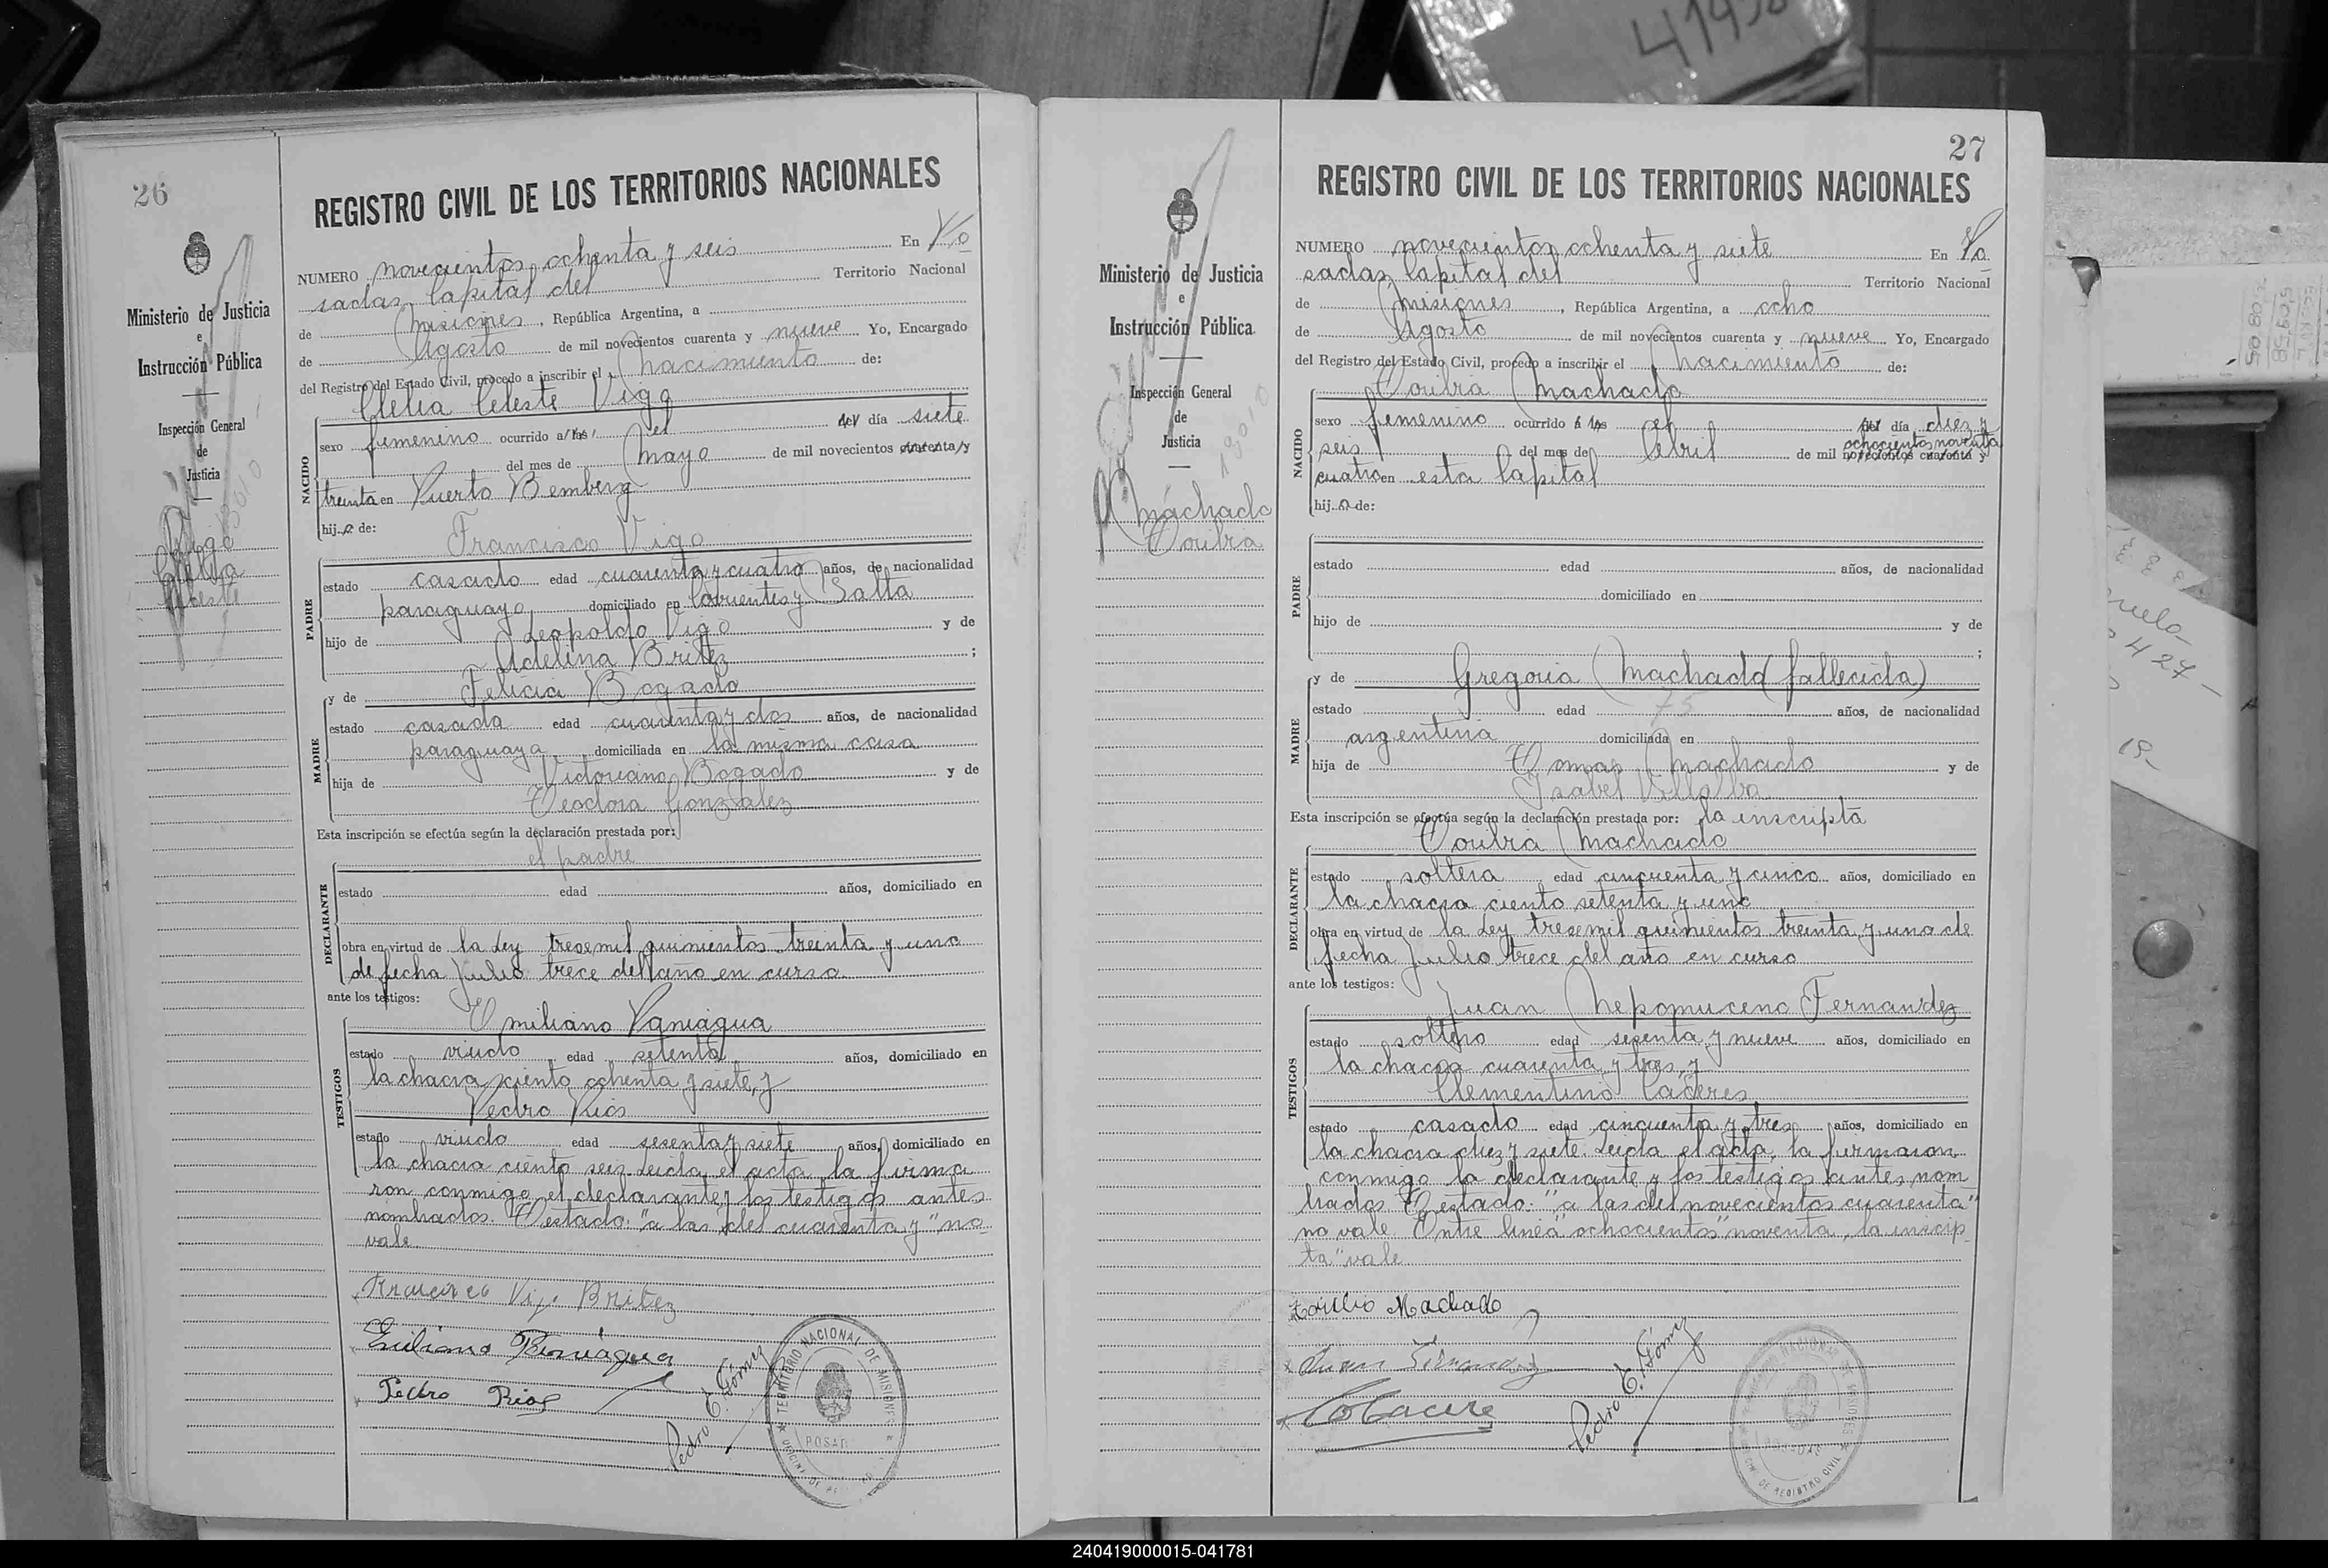 41498
26
REGISTRO CIVIL DE LOS TERRITORIOS NACIONALES
Ministerio de Justicia
e
Instrucción Pública
Inspección General
de
Justicia
Vigo
Clelia
Celeste
NUMERO novecientos ochenta y seis En Po
sadas Capital del Territorio Nacional
de Misiones, República Argentina, a
de Agosto de mil novecientos cuarenta y nueve Yo, Encargado
del Registro del Estado Civil, procedo a inscribir el nacimiento de:
Clelia Celeste Vigo
NACIDO
sexo femenino ocurrido a las el del día siete
del mes de Mayo de mil novecientos cuarenta y
treinta en Puerto Bemberg
hija de:
Francisco Vigo
PADRE
estado casado edad cuarenta y cuatro años, de nacionalidad
paraguayo domiciliado en Corrientes y Salta
hijo de Leopoldo Vigo y de
Adelina Britez ;
y de Felicia Bogado
MADRE
estado casada edad cuarenta y dos años, de nacionalidad
paraguaya domiciliada en la misma casa
hija de Victoriano Bogado y de
Teodora Gonzalez
Esta inscripción se efectúa según la declaración prestada por:
el padre
DECLARANTE
estado edad años, domiciliado en
obra en virtud de la Ley trece mil quinientos treinta y uno
de fecha Julio trece del año en curso.
ante los testigos:
Emiliano Paniagua
TESTIGOS
estado viudo edad setenta años, domiciliado en
la chacra ciento ochenta y siete, y
Pedro Rios
estado viudo edad sesenta y siete años, domiciliado en
la chacra ciento seis. Leida el acta, la firma
ron conmigo el declarante y los testigos antes
nombrados. Testado: "a las del cuarenta y" no
vale.
Francisco Vigo Britez
Emiliano Paniagua
Pedro Rios
Pedro E. Gómez
TERRITORIO NACIONAL DE MISIONES
27
REGISTRO CIVIL DE LOS TERRITORIOS NACIONALES
Ministerio de Justicia
e
Instrucción Pública
Inspección General
de
Justicia
Machado
Toribia
NUMERO novecientos ochenta y siete En Po
sadas Capital del Territorio Nacional
de Misiones, República Argentina, a ocho
de Agosto de mil novecientos cuarenta y nueve Yo, Encargado
del Registro del Estado Civil, procedo a inscribir el nacimiento de:
Toribia Machado
NACIDO
sexo femenino ocurrido a las el del día diez y
ochocientos noventa
seis del mes de Abril de mil novecientos cuarenta y
cuatro en esta Capital
hija de:
PADRE
estado edad años, de nacionalidad
domiciliado en
hijo de y de
;
y de Gregoria Machado (fallecida)
MADRE
estado edad 75 años, de nacionalidad
argentina domiciliada en
hija de Tomas Machado y de
Isabel Villalba
Esta inscripción se efectúa según la declaración prestada por: la inscripta
Toribia Machado
DECLARANTE
estado soltera edad cincuenta y cinco años, domiciliado en
la chacra ciento setenta y uno
obra en virtud de la Ley trece mil quinientos treinta y uno de
fecha Julio trece del año en curso
ante los testigos:
Juan Nepomuceno Fernandez
TESTIGOS
estado soltero edad sesenta y nueve años, domiciliado en
la chacra cuarenta y tres, y
Clementino Cáceres
estado casado edad cincuenta y tres años, domiciliado en
la chacra diez y siete. Leida el acta, la firmaron
conmigo la declarante y los testigos antes nom
brados. Testado: "a las del novecientos cuarenta"
no vale. Entre linea "ochocientos" noventa, la inscrip
ta" vale.
Toribio Machado
Juan Fernandez
Pedro E. Gómez
240419000015-041781